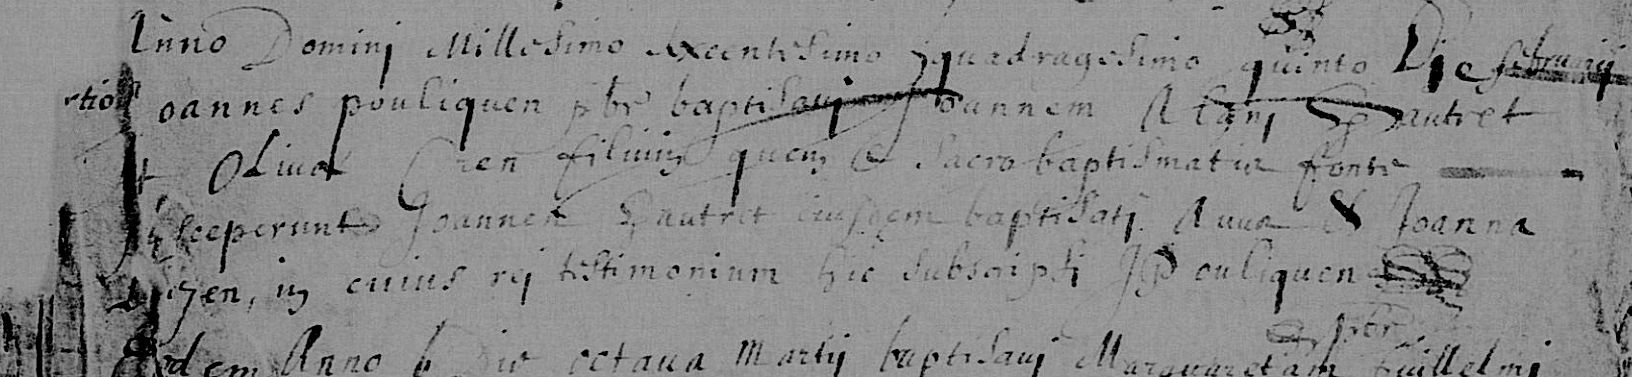 Anno Dominj Millesimo sexcentesimo quadragesimo quinto Die februarij
Joannes pouliquen pbr baptisauj Joannem Alanj Pautret
Et Oliuae Cren filium quem e sacro baptismatis fonte
susceperunt Joannes Pautret eiusdem baptisatj Auus Et Joanna
in cuius rej testimonium hic subscripsi J Pouliquen
pbr
Eodem Anno Die octaua Martij baptisauj Margaretam Guillelmj